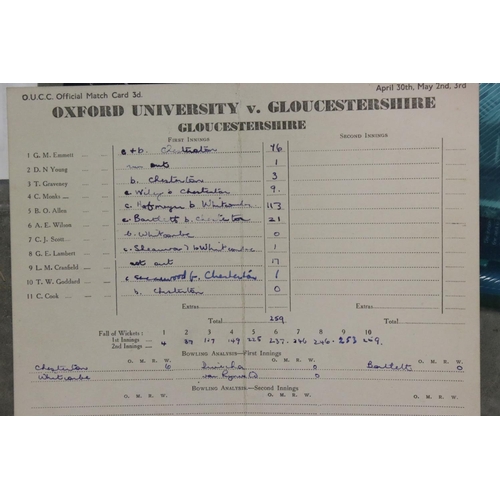 O.U.C.C. Official Match Card 3d. April 30th, May 2nd, 3rd
OXFORD UNIVERSITY v. GLOUCESTERSHIRE
GLOUCESTERSHIRE
FIRST INNINGS SECOND INNINGS
1 G. M. Emmett c + b. Chesterton 46
2 D. N Young run out 1
3 T. Graveney b. Chesterton 3
4 C. Monks c. Wiley b Chesterton 9.
5 B. O. Allen c. Hofmeyer b Whitcombe 113
6 A. E. Wilson c. Bartlett b Chesterton 21
7 C. J. Scott b. Whitcombe 0
8 G. E. Lambert c. b Whitcombe 1
9 L. M. Cranfield not out 17
10 T. W. Goddard c b. Chesterton 1
11 C. Cook b. Chesterton 0
Extras Extras
Total 259. Total
Fall of Wickets: 1 2 3 4 5 6 7 8 9 10
1st Innings 4 117 149 225 237 246 246 253 259.
2nd Innings
BOWLING ANALYSIS—First Innings
O. M. R. W. O. M. R. W. O. M. R. W.
Chesterton 6 0 Bartlett 0
Whitcombe van Ryneveld 0
BOWLING ANALYSIS—Second Innings
O. M. R. W. O. M. R. W. O. M. R. W.